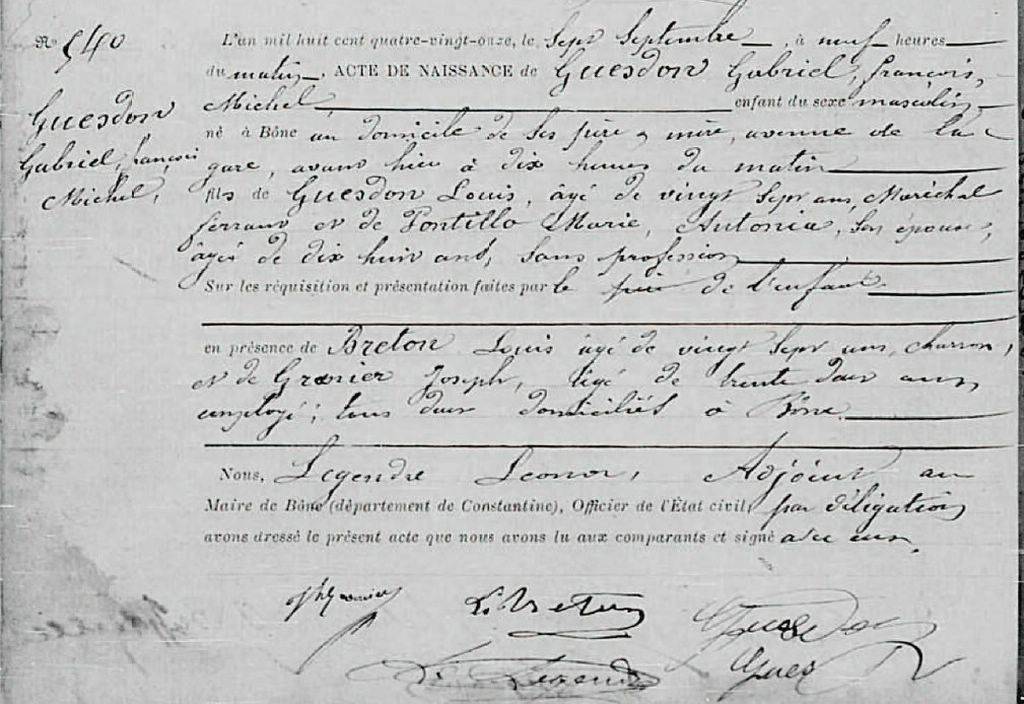 N° 540
Guesdon
Gabriel, françois
Michel,
L'an mil huit cent quatre-vingt-onze, le sept Septembre, à neuf heures
du matin, ACTE DE NAISSANCE de Guesdon Gabriel, françois,
Michel enfant du sexe masculin
né à Bône au domicile de ses père & mère, avenue de la
gare, avant hier à dix heures du matin
fils de Guesdon Louis, âgé de vingt sept ans, Maréchal
ferrant et de Pontillo Marie, Antonia, son épouse,
âgée de dix huit ans, sans profession
Sur les réquisition et présentation faites par le père de l'enfant
en présence de Breton Louis âgé de vingt sept ans, charron,
et de Grenier Joseph, âgé de trente deux ans,
employé; tous deux domiciliés à Bône
Nous, Legendre Leonor, Adjoint au
Maire de Bône (département de Constantine), Officier de l'État civil, par délégation
avons dressé le présent acte que nous avons lu aux comparants et signé avec eux.
L. Breton Guesdon
Legendre Gues